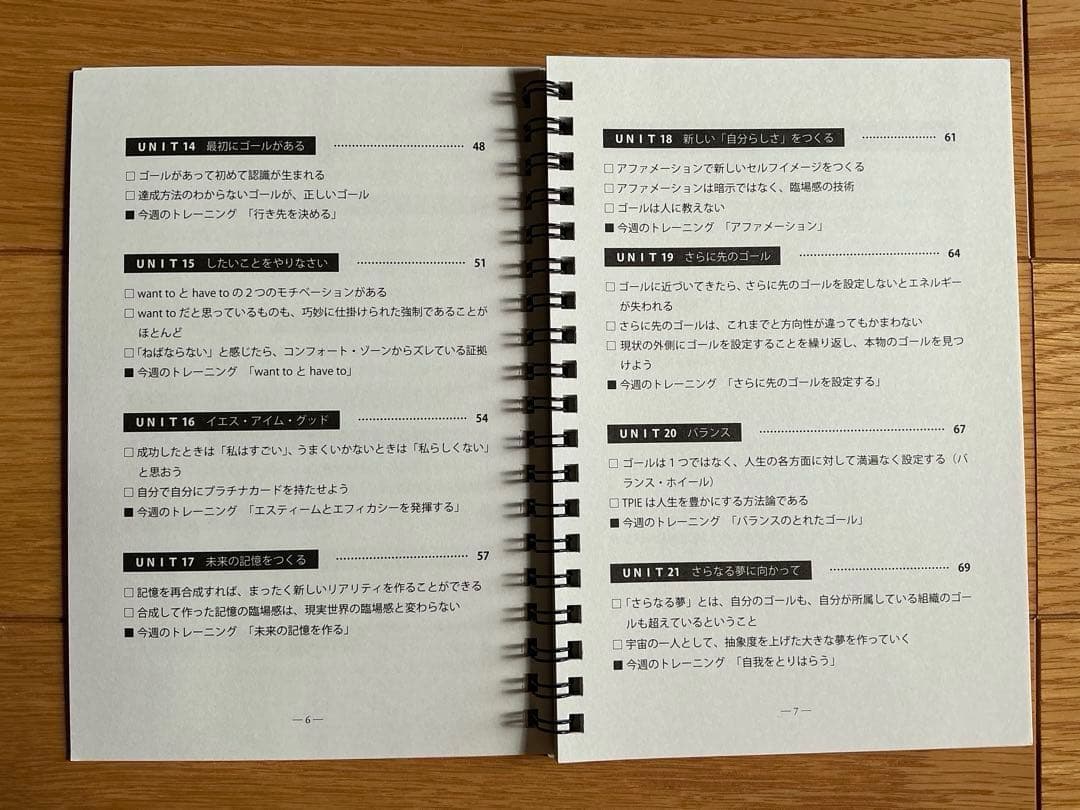 UNIT 14 最初にゴールがある 48
□ ゴールがあって初めて認識が生まれる
□ 達成方法のわからないゴールが、正しいゴール
■ 今週のトレーニング 「行き先を決める」
UNIT 15 したいことをやりなさい 51
□ want to と have to の２つのモチベーションがある
□ want to だと思っているものも、巧妙に仕掛けられた強制であることが
ほとんど
□「ねばならない」と感じたら、コンフォート・ゾーンからズレている証拠
■ 今週のトレーニング 「want to と have to」
UNIT 16 イエス・アイム・グッド 54
□ 成功したときは「私はすごい」、うまくいかないときは「私らしくない」
と思おう
□ 自分で自分にプラチナカードを持たせよう
■ 今週のトレーニング 「エスティームとエフィカシーを発揮する」
UNIT 17 未来の記憶をつくる 57
□ 記憶を再合成すれば、まったく新しいリアリティを作ることができる
□ 合成して作った記憶の臨場感は、現実世界の臨場感と変わらない
■ 今週のトレーニング 「未来の記憶を作る」
— 6 —
UNIT 18 新しい「自分らしさ」をつくる 61
□ アファメーションで新しいセルフイメージをつくる
□ アファメーションは暗示ではなく、臨場感の技術
□ ゴールは人に教えない
■ 今週のトレーニング 「アファメーション」
UNIT 19 さらに先のゴール 64
□ ゴールに近づいてきたら、さらに先のゴールを設定しないとエネルギー
が失われる
□ さらに先のゴールは、これまでと方向性が違ってもかまわない
□ 現状の外側にゴールを設定することを繰り返し、本物のゴールを見つ
けよう
■ 今週のトレーニング 「さらに先のゴールを設定する」
UNIT 20 バランス 67
□ ゴールは１つではなく、人生の各方面に対して満遍なく設定する（バ
ランス・ホイール）
□ TPIE は人生を豊かにする方法論である
■ 今週のトレーニング 「バランスのとれたゴール」
UNIT 21 さらなる夢に向かって 69
□「さらなる夢」とは、自分のゴールも、自分が所属している組織のゴー
ルも超えているということ
□ 宇宙の一人として、抽象度を上げた大きな夢を作っていく
■ 今週のトレーニング 「自我をとりはらう」
— 7 —